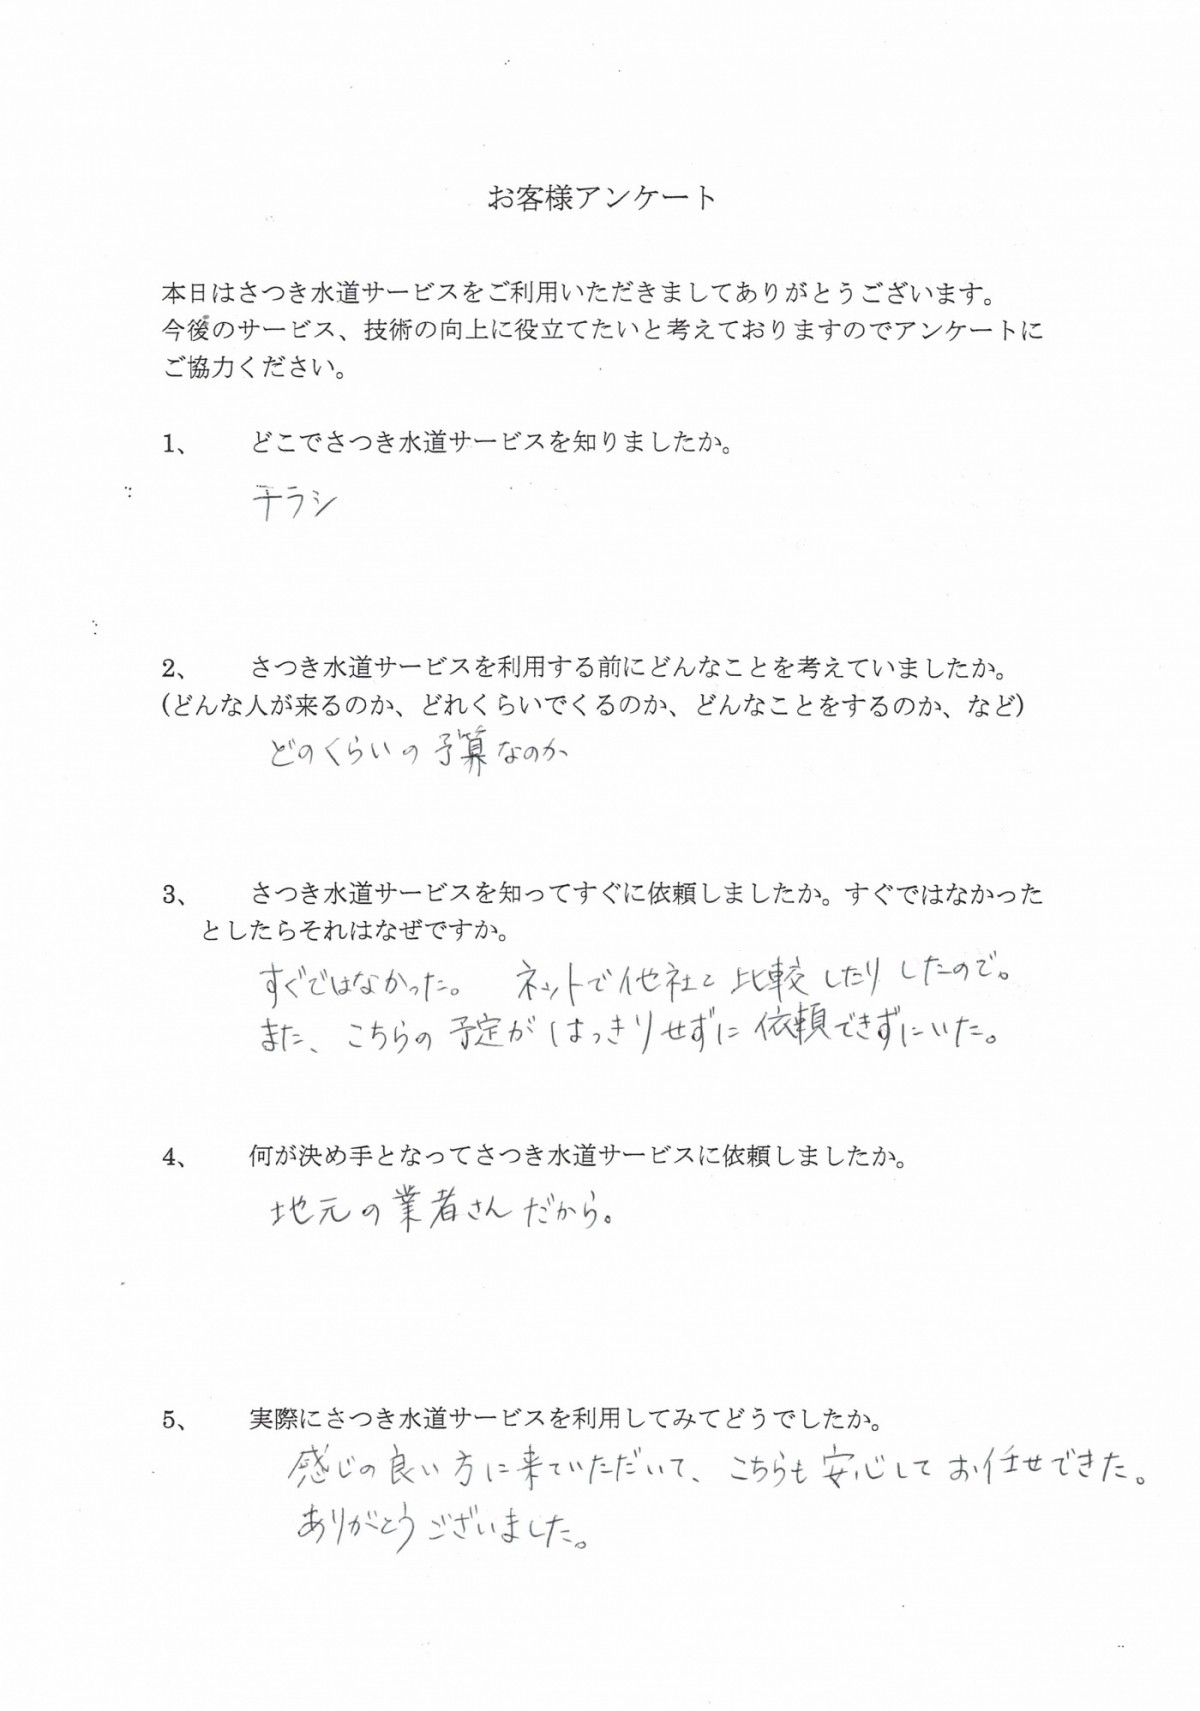 お客様アンケート
本日はさつき水道サービスをご利用いただきましてありがとうございます。
今後のサービス、技術の向上に役立てたいと考えておりますのでアンケートに
ご協力ください。
1、 どこでさつき水道サービスを知りましたか。
チラシ
2、 さつき水道サービスを利用する前にどんなことを考えていましたか。
(どんな人が来るのか、どれくらいでくるのか、どんなことをするのか、など)
どのくらいの予算なのか
3、 さつき水道サービスを知ってすぐに依頼しましたか。すぐではなかった
としたらそれはなぜですか。
すぐではなかった。 ネットで他社と比較したりしたので。
また、こちらの予定がはっきりせずに依頼できずにいた。
4、 何が決め手となってさつき水道サービスに依頼しましたか。
地元の業者さんだから。
5、 実際にさつき水道サービスを利用してみてどうでしたか。
感じの良い方に来ていただいて、こちらも安心してお任せできた。
ありがとうございました。